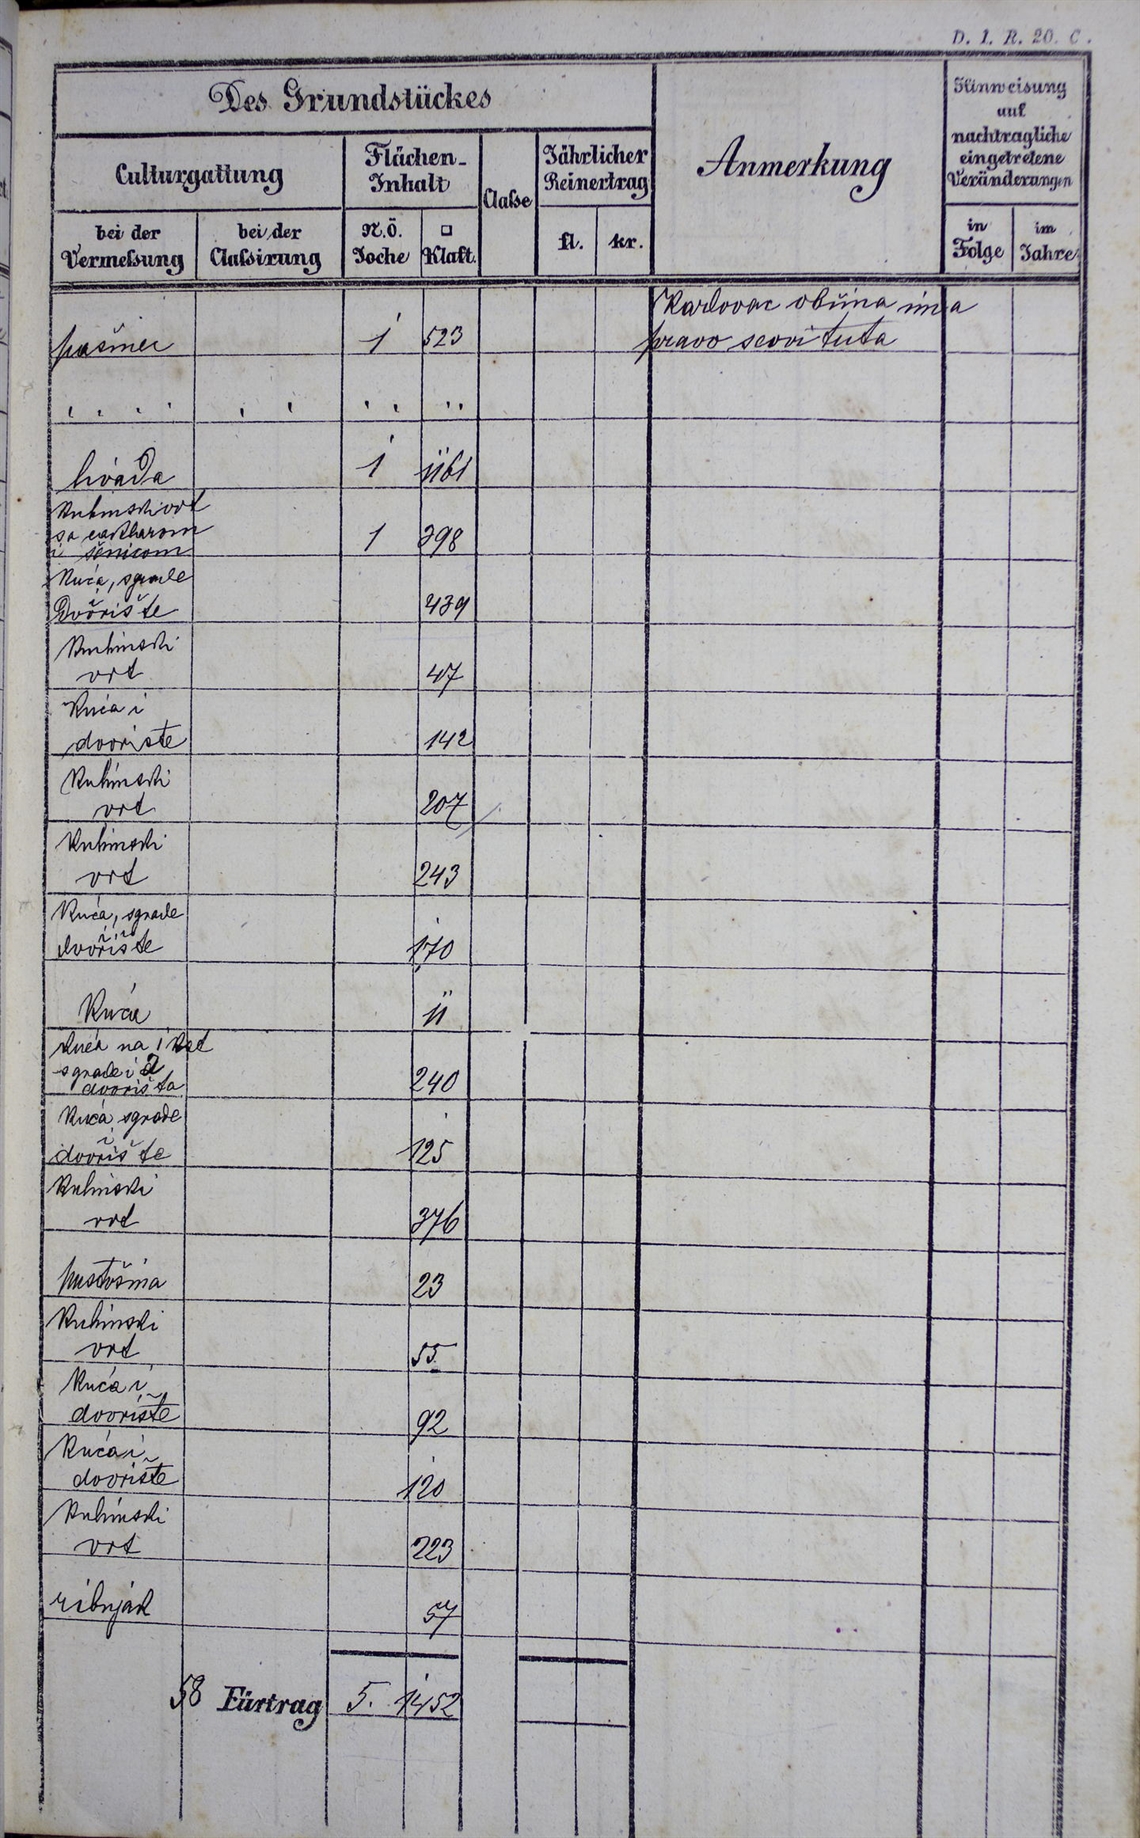 D. 1. R. 20. C.
Des Grundstückes
Anmerkung
Hinweisung
auf
nachtragliche
eingetretene
Veränderungen
Culturgattung
Flächen-
Inhalt
Classe
Jährlicher
Reinertrag
bei der
Vermessung
bei der
Classirung
N.Ö.
Joche
□
Klaft.
fl.
kr.
in
Folge
im
Jahre
Karlovac obćina ima
pašnik 1 523 pravo
livada 1 1161
Kuhinski vrt
sa
i sěnicom 1 398
Kuća, sgrade
dvorište 439
Kuhinski
vrt 47
Kuća i
dvorište 142
Kuhinski
vrt 207
Kuhinski
vrt 243
Kuća, sgrade
i dvorište 170
Kuća 11
Kuća na 1 kat
sgrade i 2
dvorišta 240
Kuća sgrade
i dvorište 125
Kuhinski
vrt 376
pustošina 23
Kuhinski
vrt 55
Kuća i
dvorište 92
Kuća i
dvorište 120
Kuhinski
vrt 223
ribnjak 57
58 Fürtrag 5. 1452